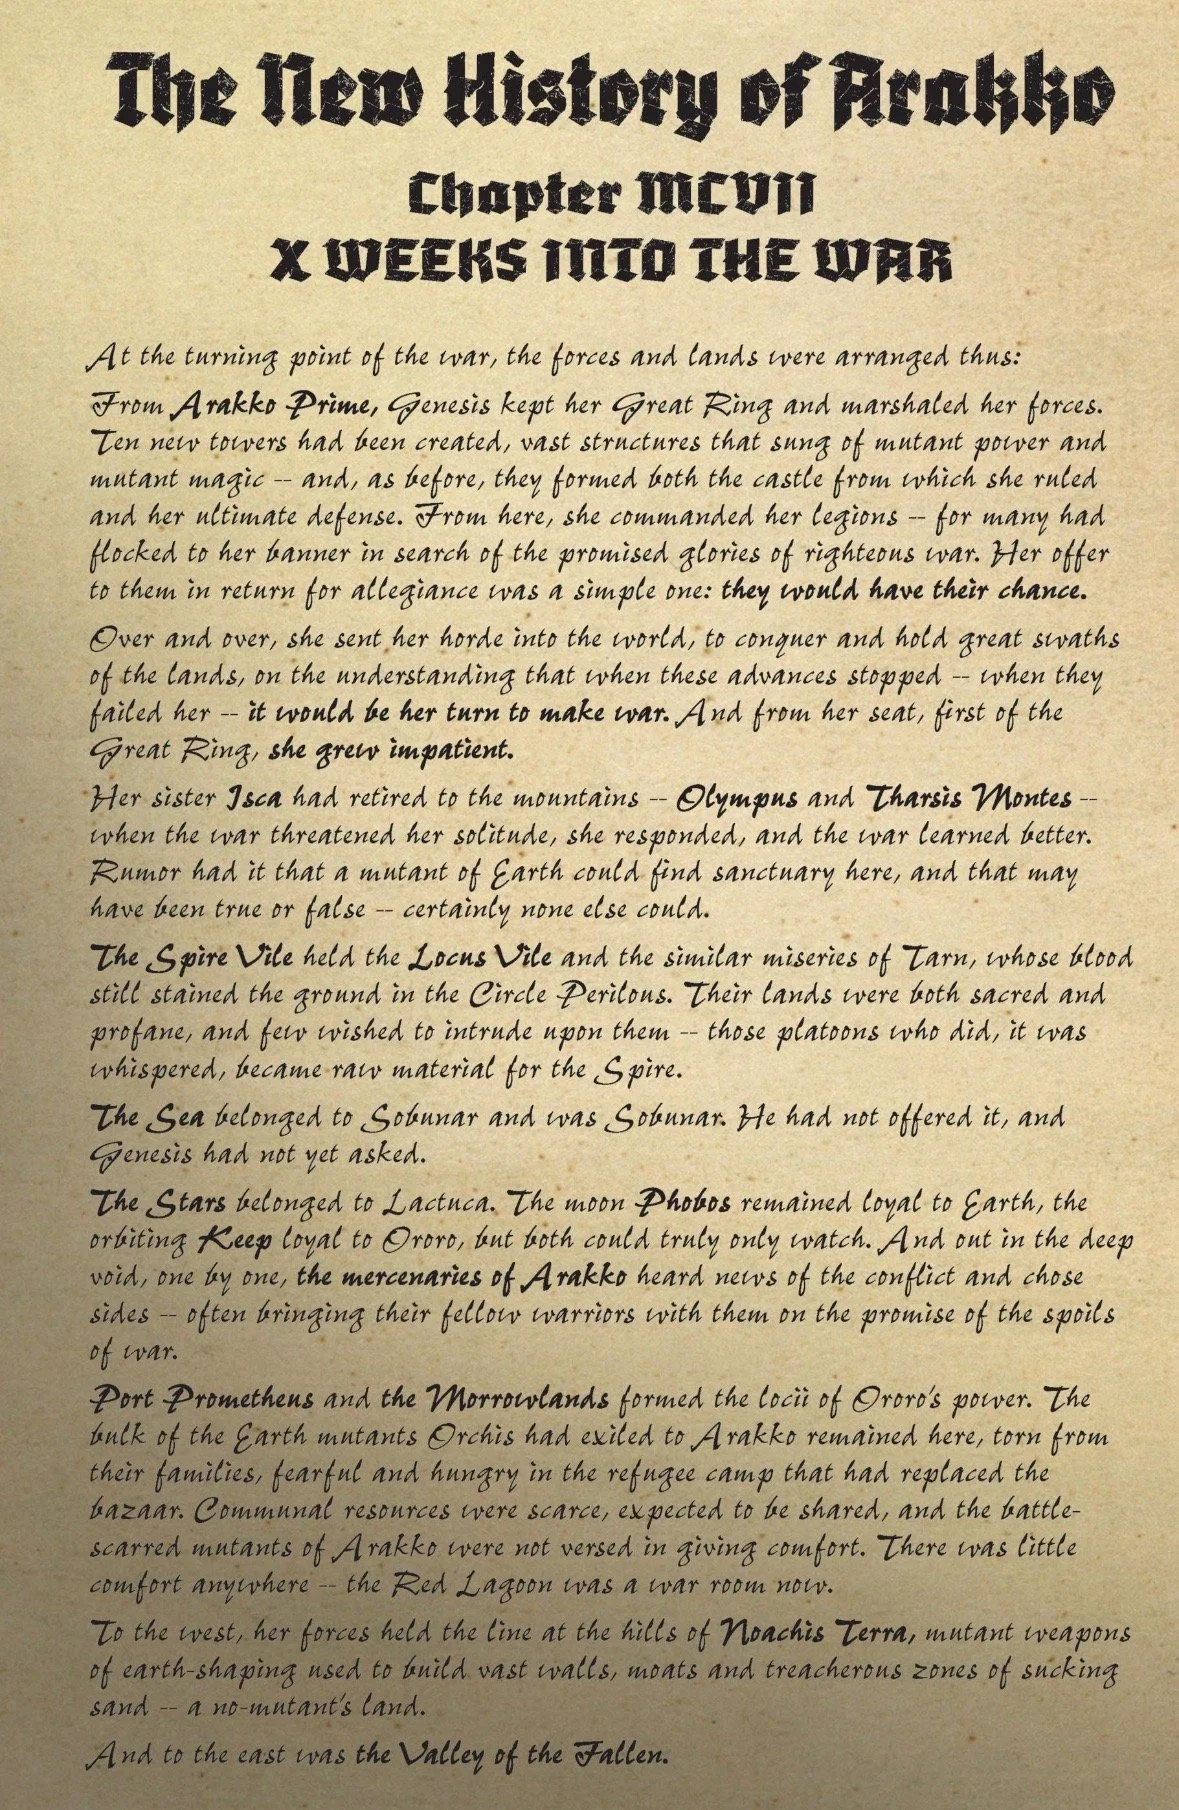 The New History of Arakko
Chapter MCVII
X WEEKS INTO THE WAR
At the turning point of the war, the forces and lands were arranged thus:
From Arakko Prime, Genesis kept her Great Ring and marshaled her forces.
Ten new towers had been created, vast structures that sung of mutant power and
mutant magic -- and, as before, they formed both the castle from which she ruled
and her ultimate defense. From here, she commanded her legions -- for many had
flocked to her banner in search of the promised glories of righteous war. Her offer
to them in return for allegiance was a simple one: they would have their chance.
Over and over, she sent her horde into the world, to conquer and hold great swaths
of the lands, on the understanding that when these advances stopped -- when they
failed her -- it would be her turn to make war. And from her seat, first of the
Great Ring, she grew impatient.
Her sister Isca had retired to the mountains -- Olympus and Tharsis Montes --
when the war threatened her solitude, she responded, and the war learned better.
Rumor had it that a mutant of Earth could find sanctuary here, and that may
have been true or false -- certainly none else could.
The Spire Vile held the Locus Vile and the similar miseries of Tarn, whose blood
still stained the ground in the Circle Perilous. Their lands were both sacred and
profane, and few wished to intrude upon them -- those platoons who did, it was
whispered, became raw material for the Spire.
The Sea belonged to Sobunar and was Sobunar. He had not offered it, and
Genesis had not yet asked.
The Stars belonged to Lactuca. The moon Phobos remained loyal to Earth, the
orbiting Keep loyal to Ororo, but both could truly only watch. And out in the deep
void, one by one, the mercenaries of Arakko heard news of the conflict and chose
sides -- often bringing their fellow warriors with them on the promise of the spoils
of war.
Port Prometheus and the Morrowlands formed the locii of Ororo's power. The
bulk of the Earth mutants Orchis had exiled to Arakko remained here, torn from
their families, fearful and hungry in the refugee camp that had replaced the
bazaar. Communal resources were scarce, expected to be shared, and the battle-
scarred mutants of Arakko were not versed in giving comfort. There was little
comfort anywhere -- the Red Lagoon was a war room now.
To the west, her forces held the line at the hills of Noachis Terra, mutant weapons
of earth-shaping used to build vast walls, moats and treacherous zones of sucking
sand -- a no-mutant's land.
And to the east was the Valley of the Fallen.